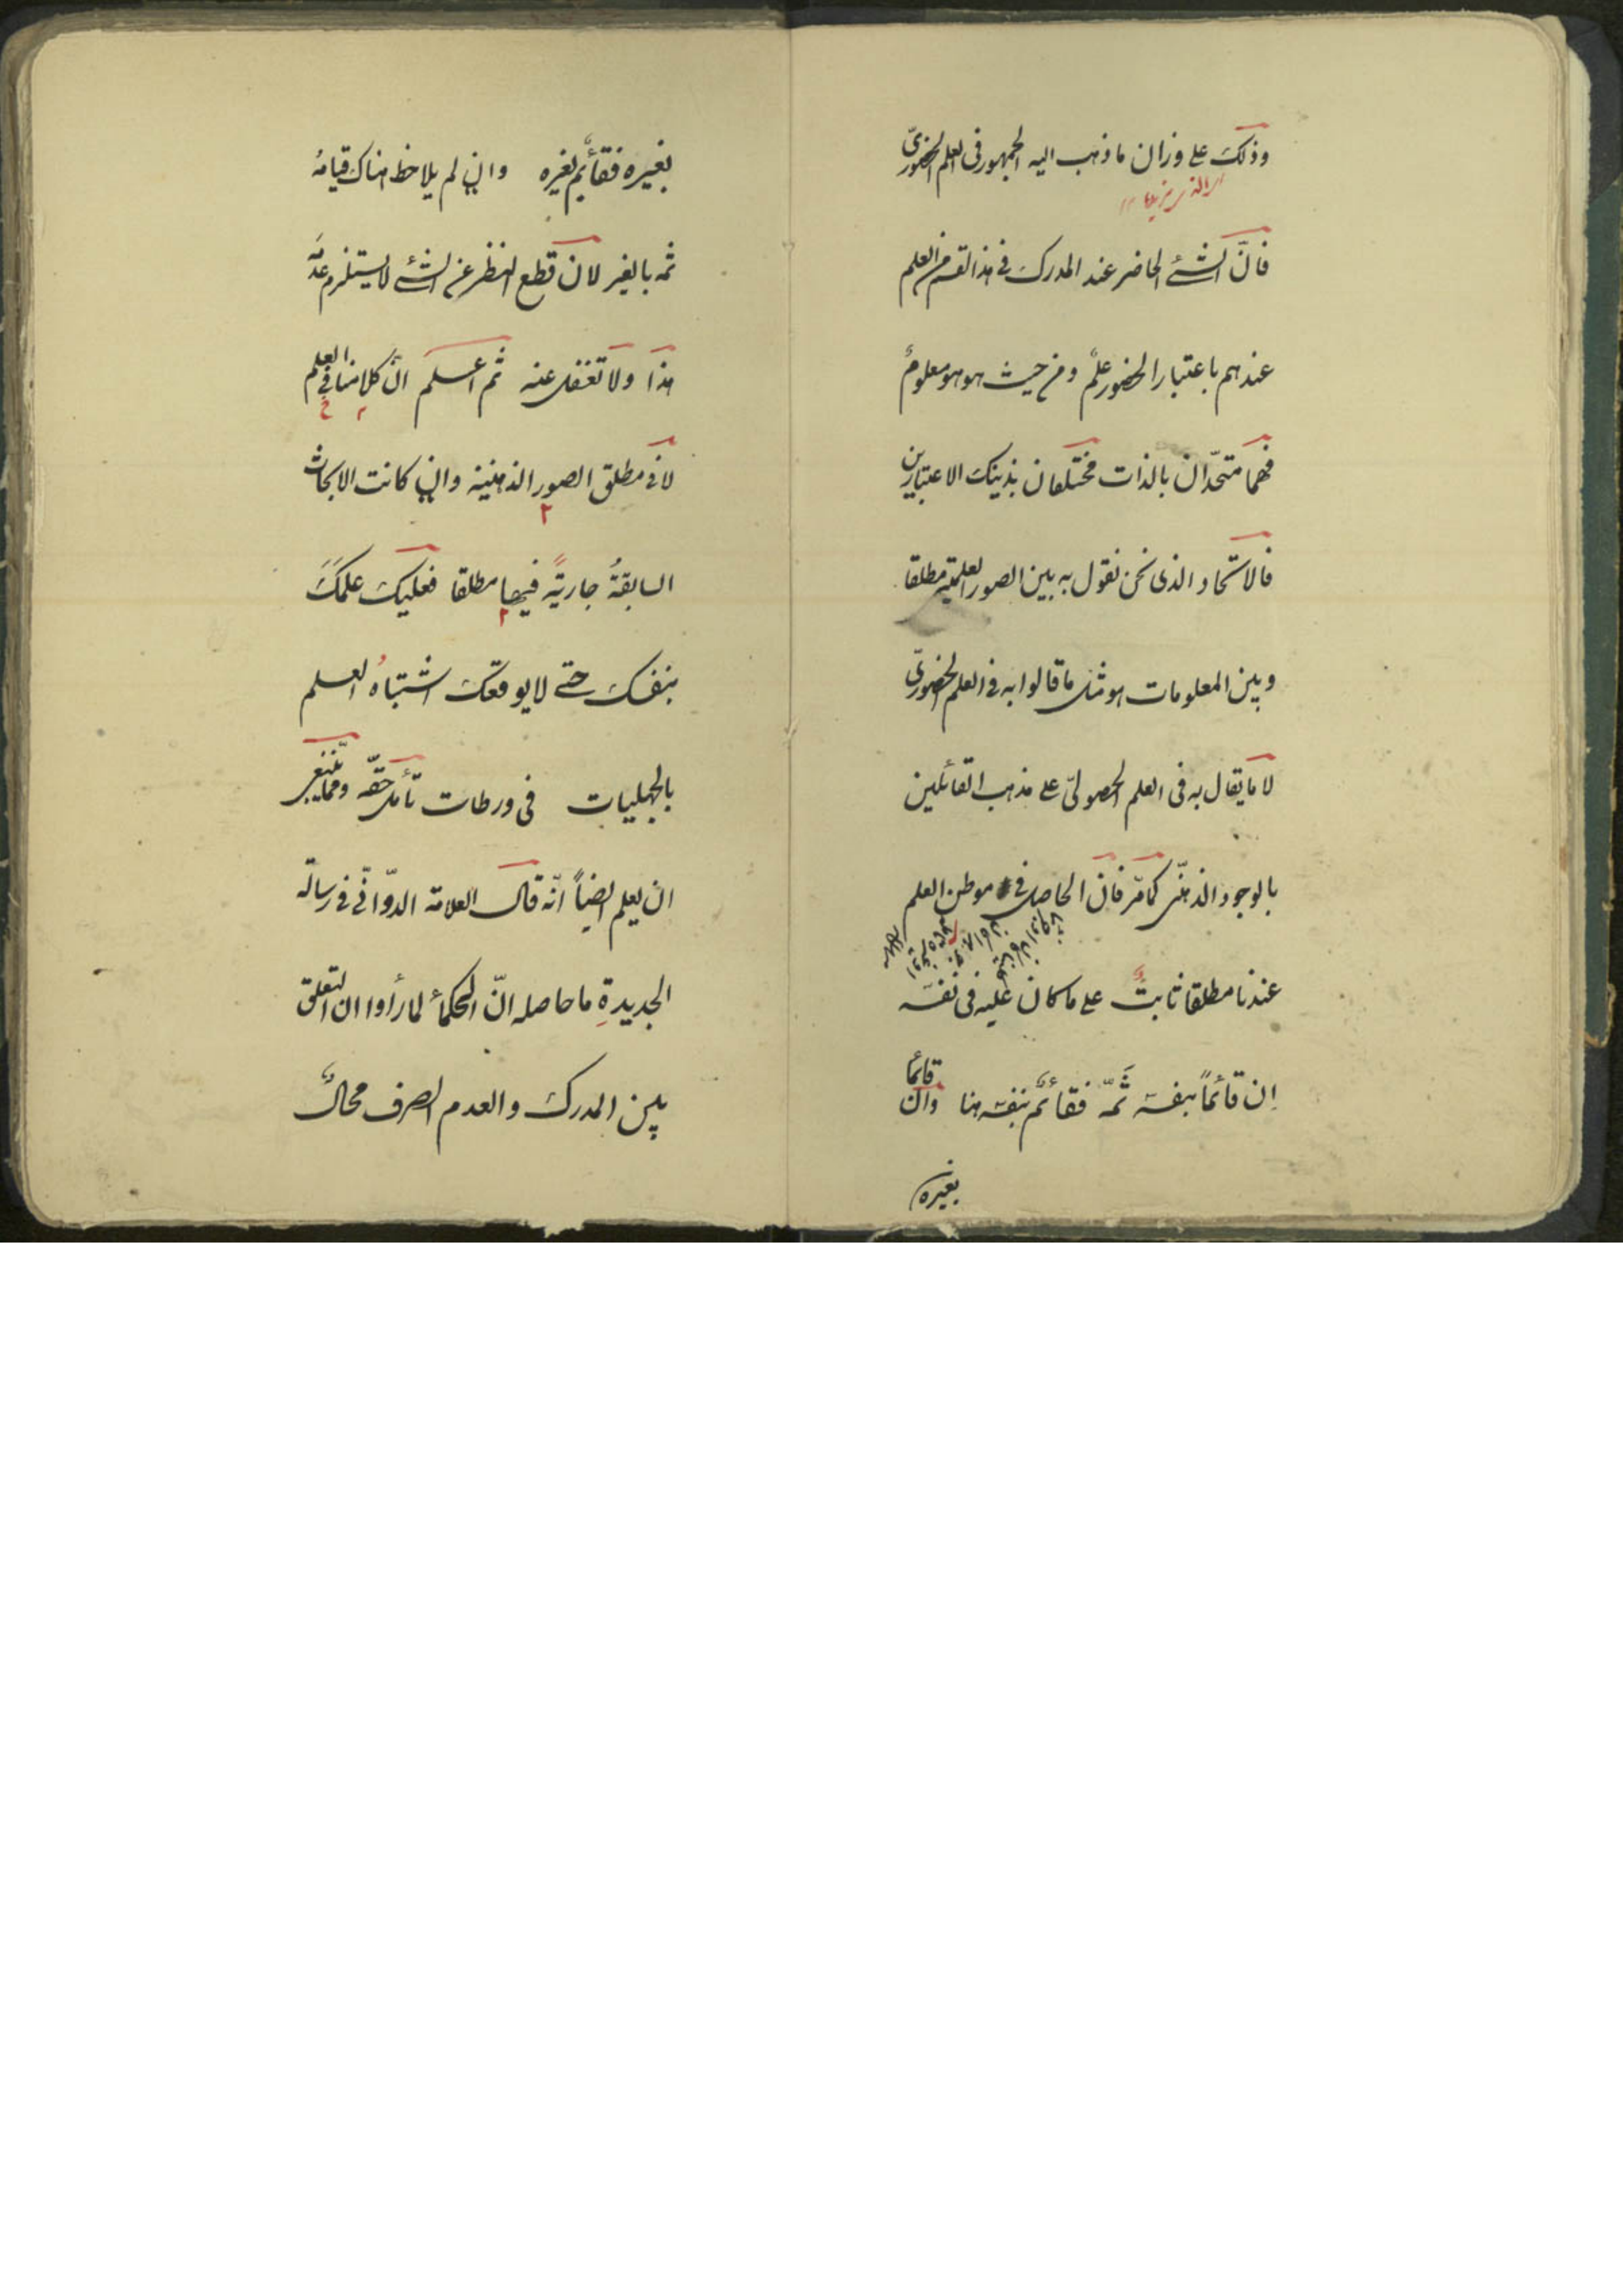 وذلك على وزان ما ذهب اليه الجمهور فى العلم الحضورىّ
فانّ الشئ الحاضر عند المدرك فى هذا القسم من العلم
عندهم باعتبار الحضور علمٌ ومن حيث هو هو معلومٌ
فهما متحدّان بالذات مختلفان بذينك الاعتبارين
فالاتحاد الذى نحن نقول به بين الصور العلمية مطلقا
وبين المعلومات هو مثل ما قالوا به فى العلم الحضورىّ
لا ما يقال به فى العلم الحصولىّ على مذهب القائلين
بالوجود الذهنّى كما مرّ فان الحاصل فى موطن العلم
عندنا مطلقا ثابتٌ على ما كان عليه فى نفسه
ان قائماً بنفسه ثَمّه فقائمٌ بنفسه هنا وان قائما
بغيره
بغيره فقائمٌ بغيره وان لم يلاحظ هناك قيامهُ
ثمه بالغير لان قطع النظر عن الشئ لا يستلزم عدمَه
هذا ولا تغفل عنه ثم اعلم انّ كلامنا فى العلم
لا فى مطلق الصور الذهنية وان كانت الابحاث
السابقةُ جاريةً فيها مطلقا فعليك علمَكَ
بنفسك حتى لا يوقعك اشتباهُ العلم
بالجهليات فى ورطات تأمل حقّه ومما ينبغى
ان يعلم ايضاً انّه قال العلامة الدوّانىّ فى رسالته
الجديدةِ ما حاصله انّ الحكمأ لما رأوا ان التعلق
بين المدرك والعدم الصرف محالٌ